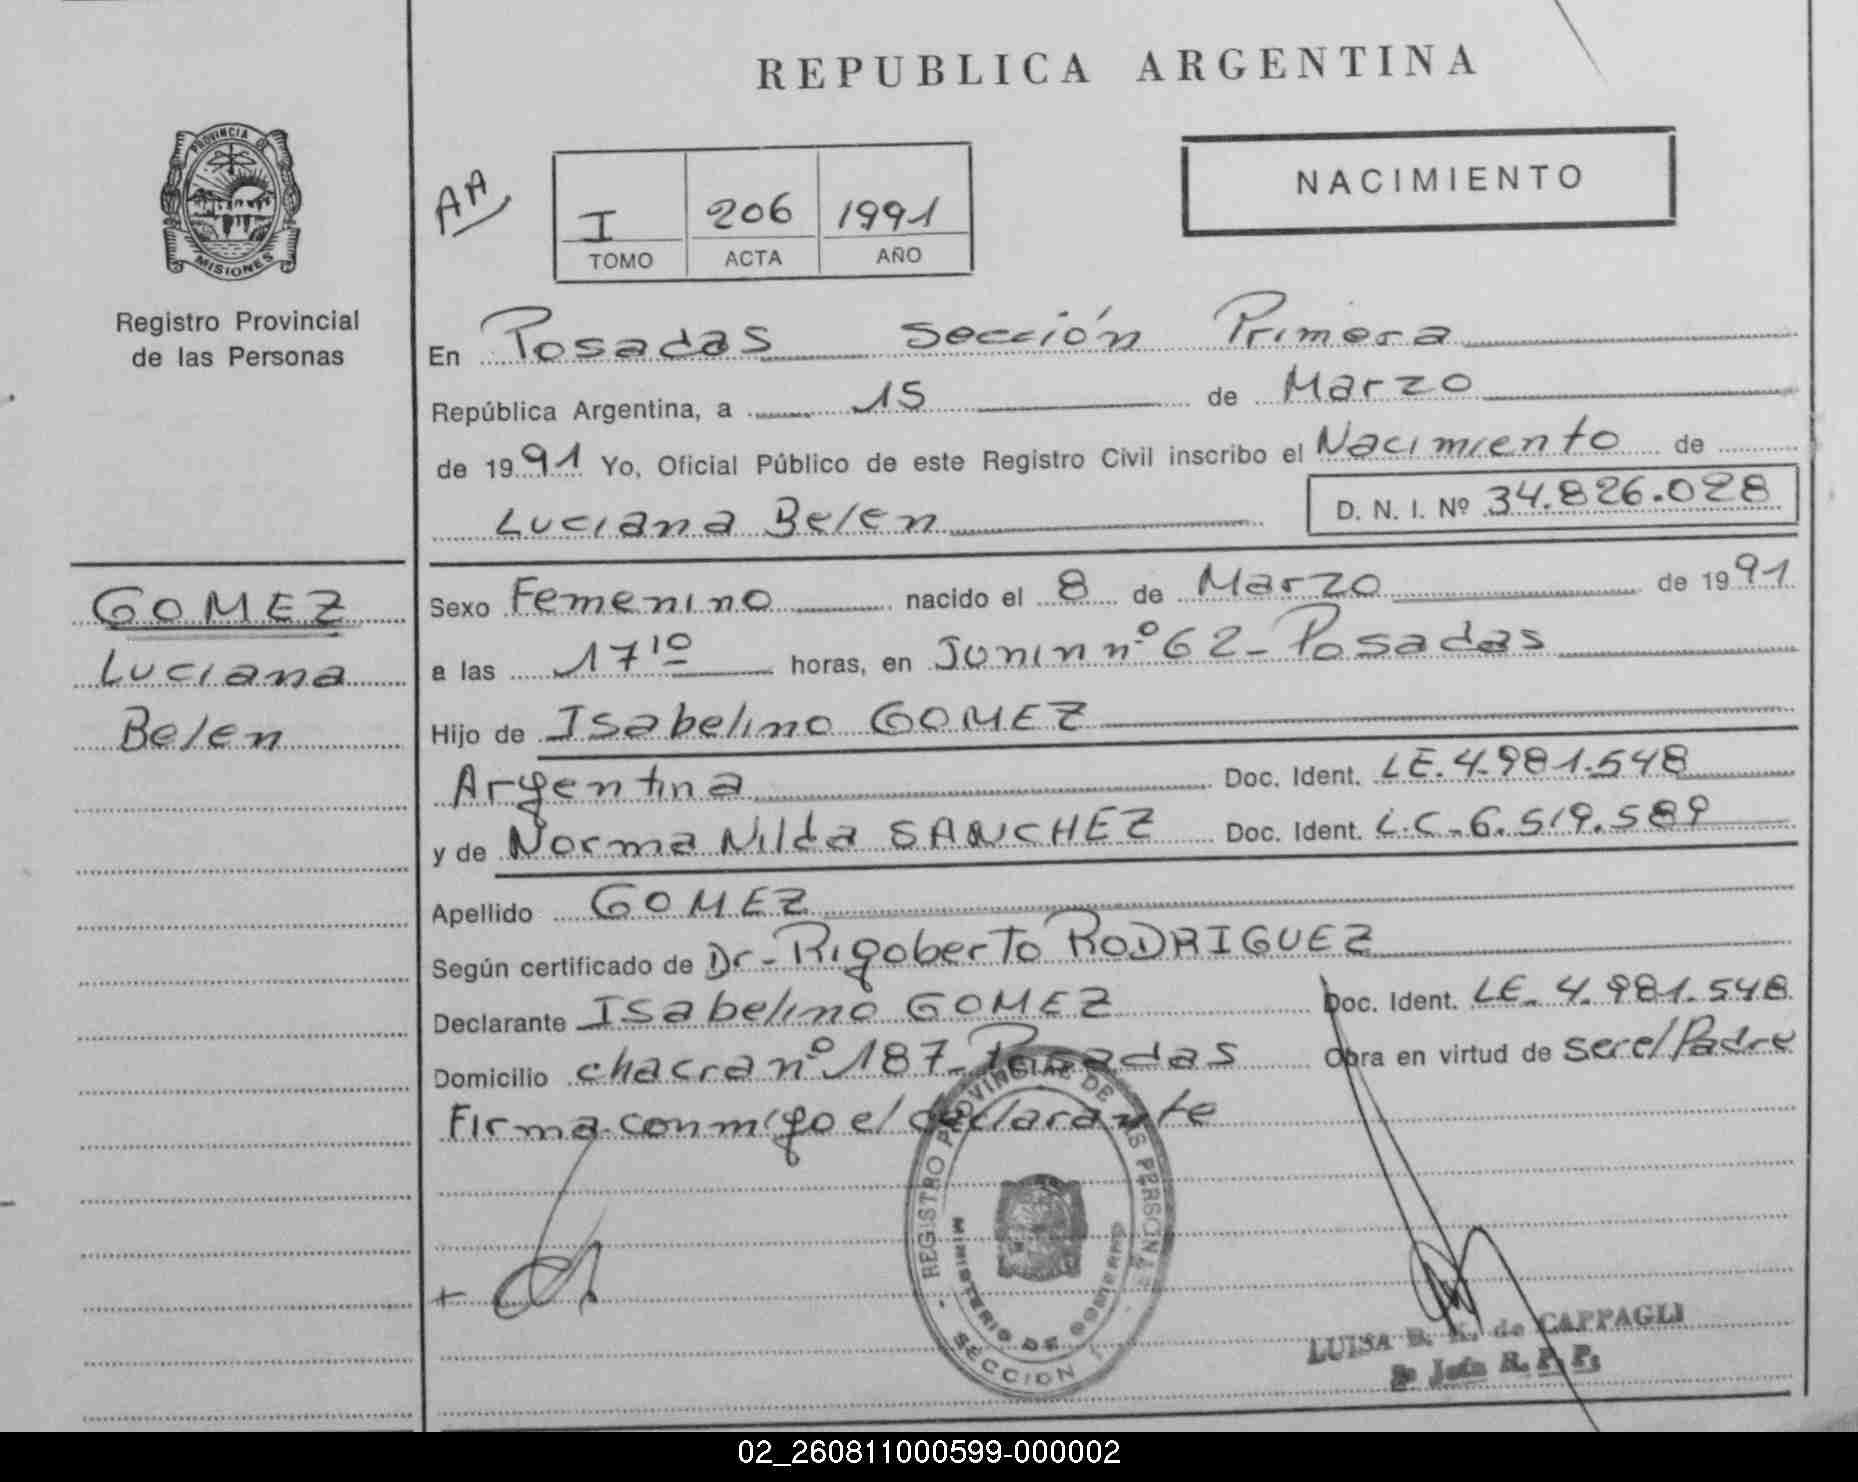 REPUBLICA ARGENTINA
PROVINCIA DE
MISIONES
Registro Provincial
de las Personas
AA
I 206 1991
TOMO ACTA AÑO
NACIMIENTO
En Posadas Sección Primera
República Argentina, a 15 de Marzo
de 1991 Yo, Oficial Público de este Registro Civil inscribo el Nacimiento de
Luciana Belen D. N. I. Nº 34.826.028
GOMEZ
Luciana
Belen
Sexo Femenino nacido el 8 de Marzo de 1991
a las 17 10 horas, en Junin nº 62 - Posadas
Hijo de Isabelino GOMEZ
Argentina Doc. Ident. LE. 4.981.548
y de Norma Nilda SANCHEZ Doc. Ident. L.C. 6.519.589
Apellido GOMEZ
Según certificado de Dr. Rigoberto RODRIGUEZ
Declarante Isabelino GOMEZ Doc. Ident. LE. 4.981.548
Domicilio chacra nº 187 - Posadas Obra en virtud de ser el Padre
Firma conmigo el declarante
REGISTRO PROVINCIAL DE LAS PERSONAS
MINISTERIO DE GOBIERNO
SECCION 1
LUISA B. K. de CAPPAGLI
R. P. P.
02_260811000599-000002